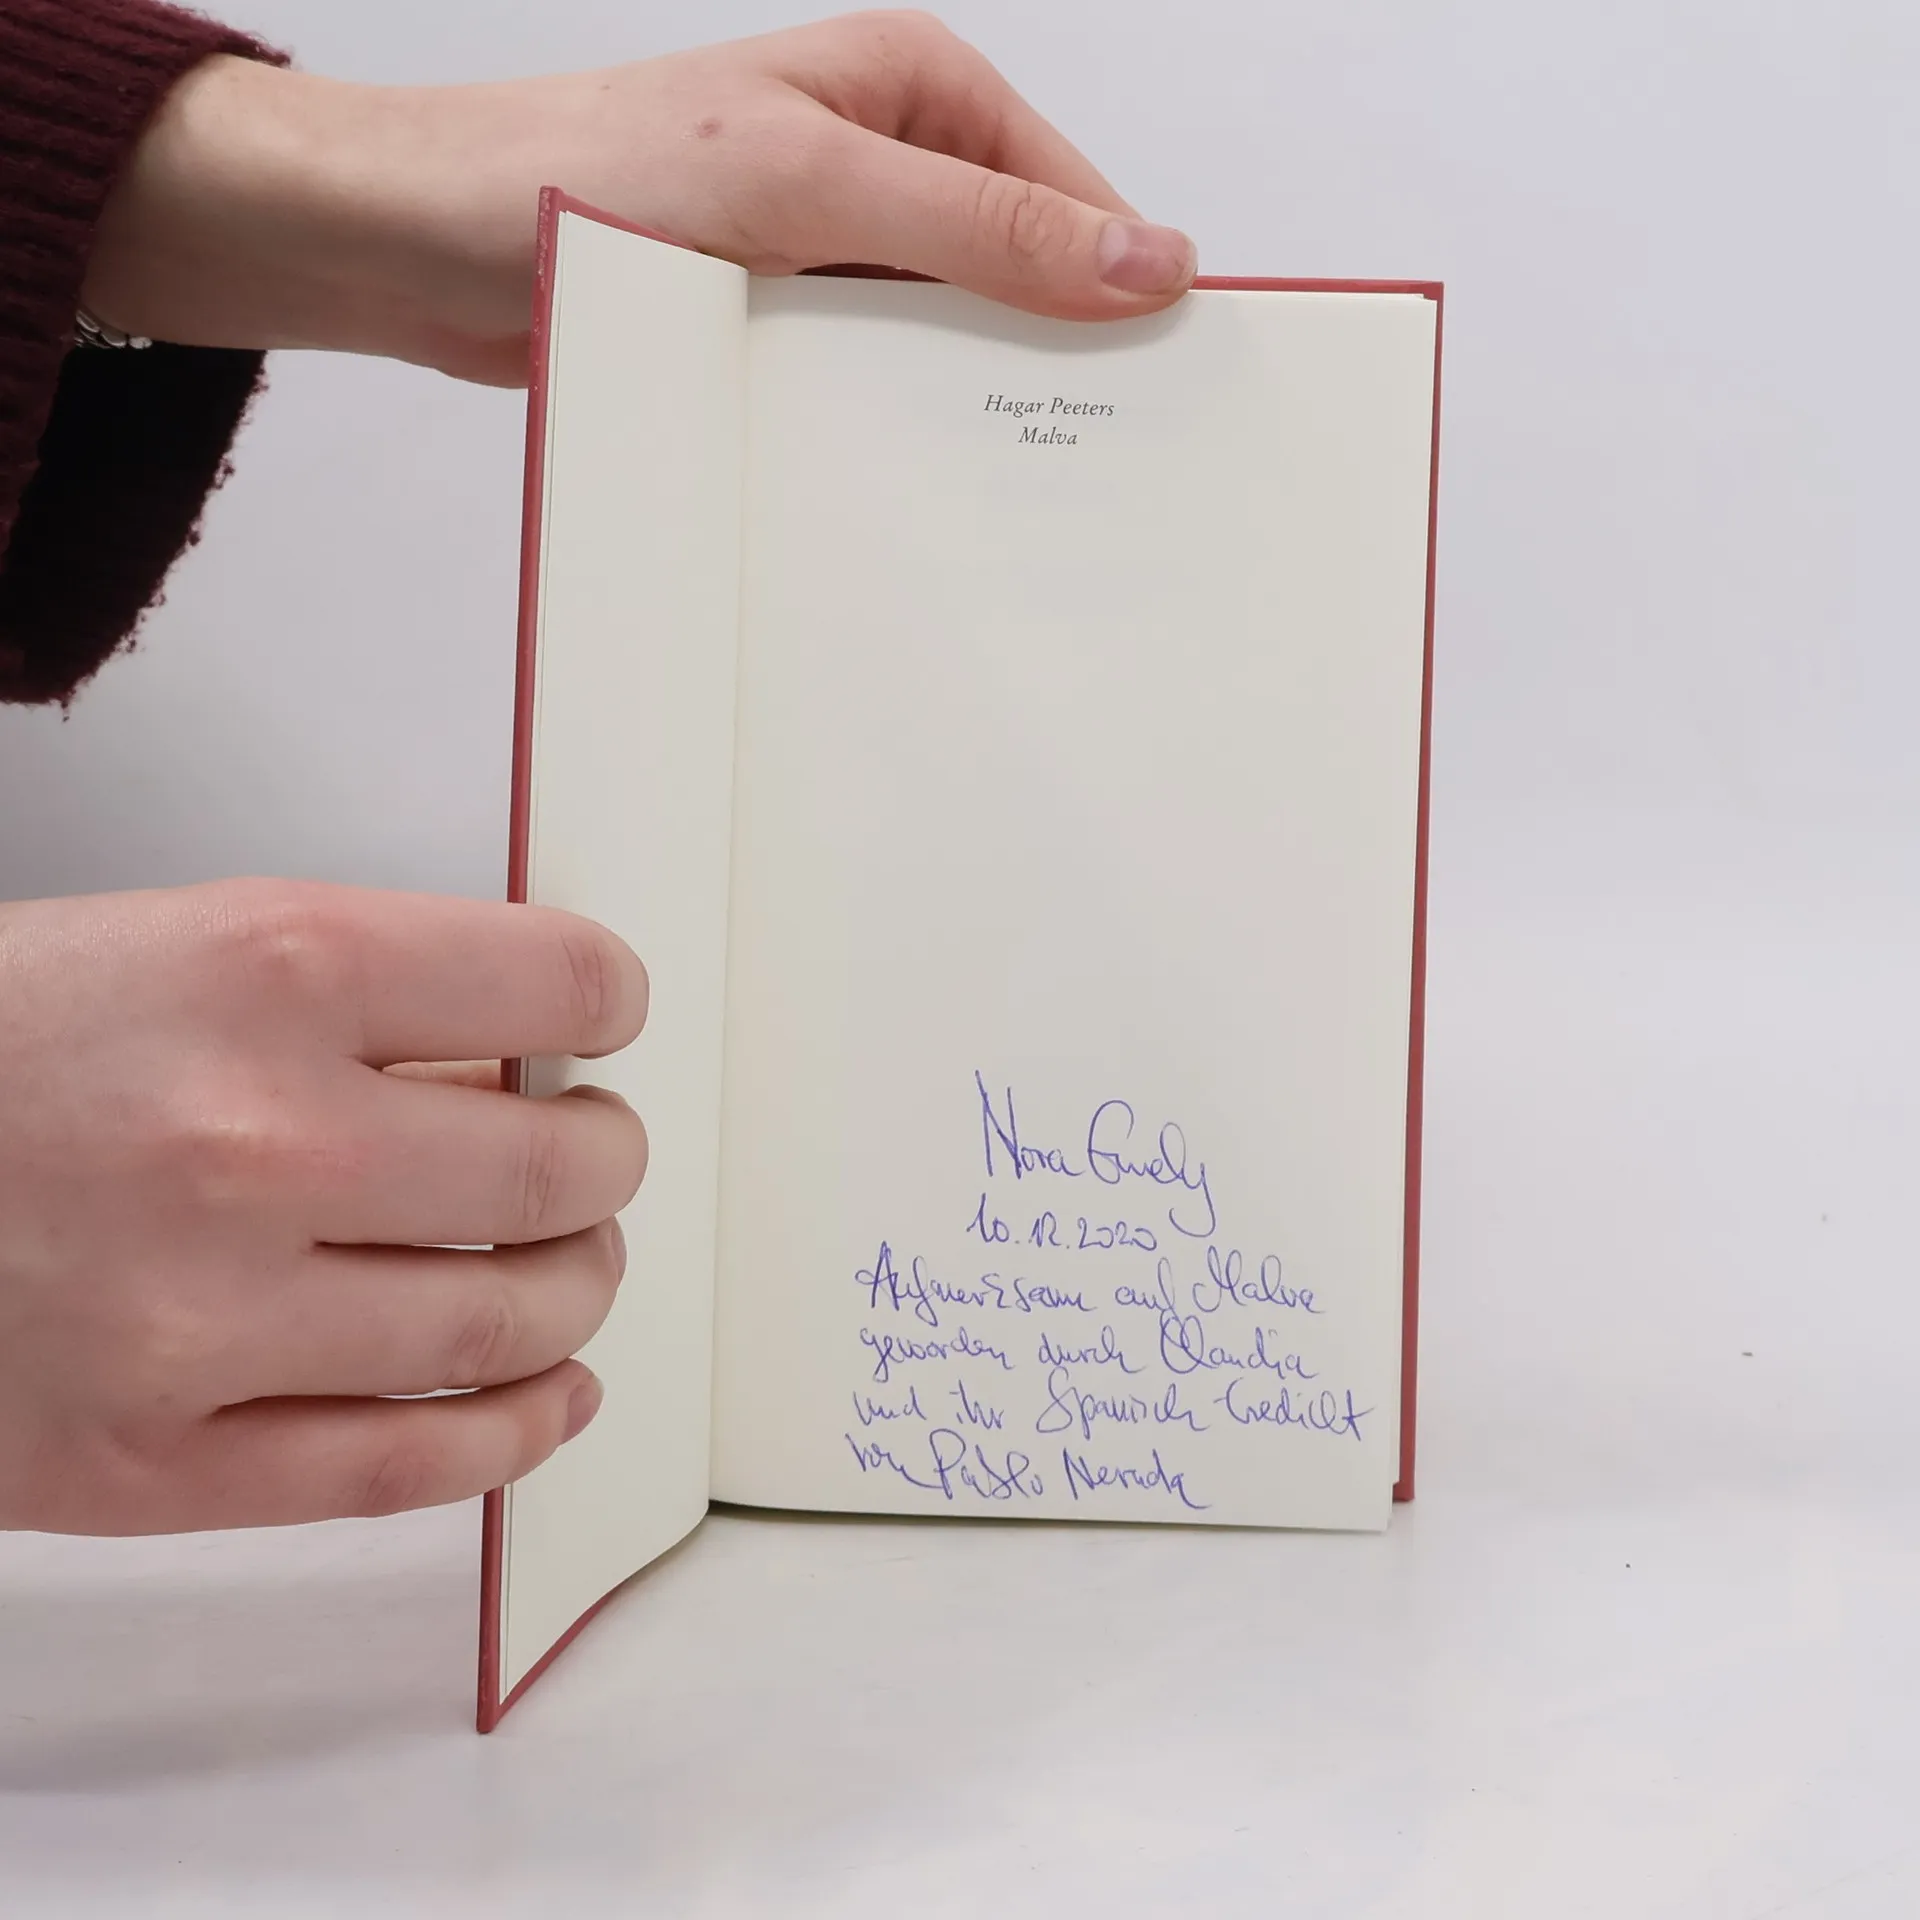 Hagar Peeters
Malva
Nora
10.12.2020
Aufmerksam auf Malva
geworden durch Claudia
und ihr Spanisch-Gedicht
von Pablo Neruda